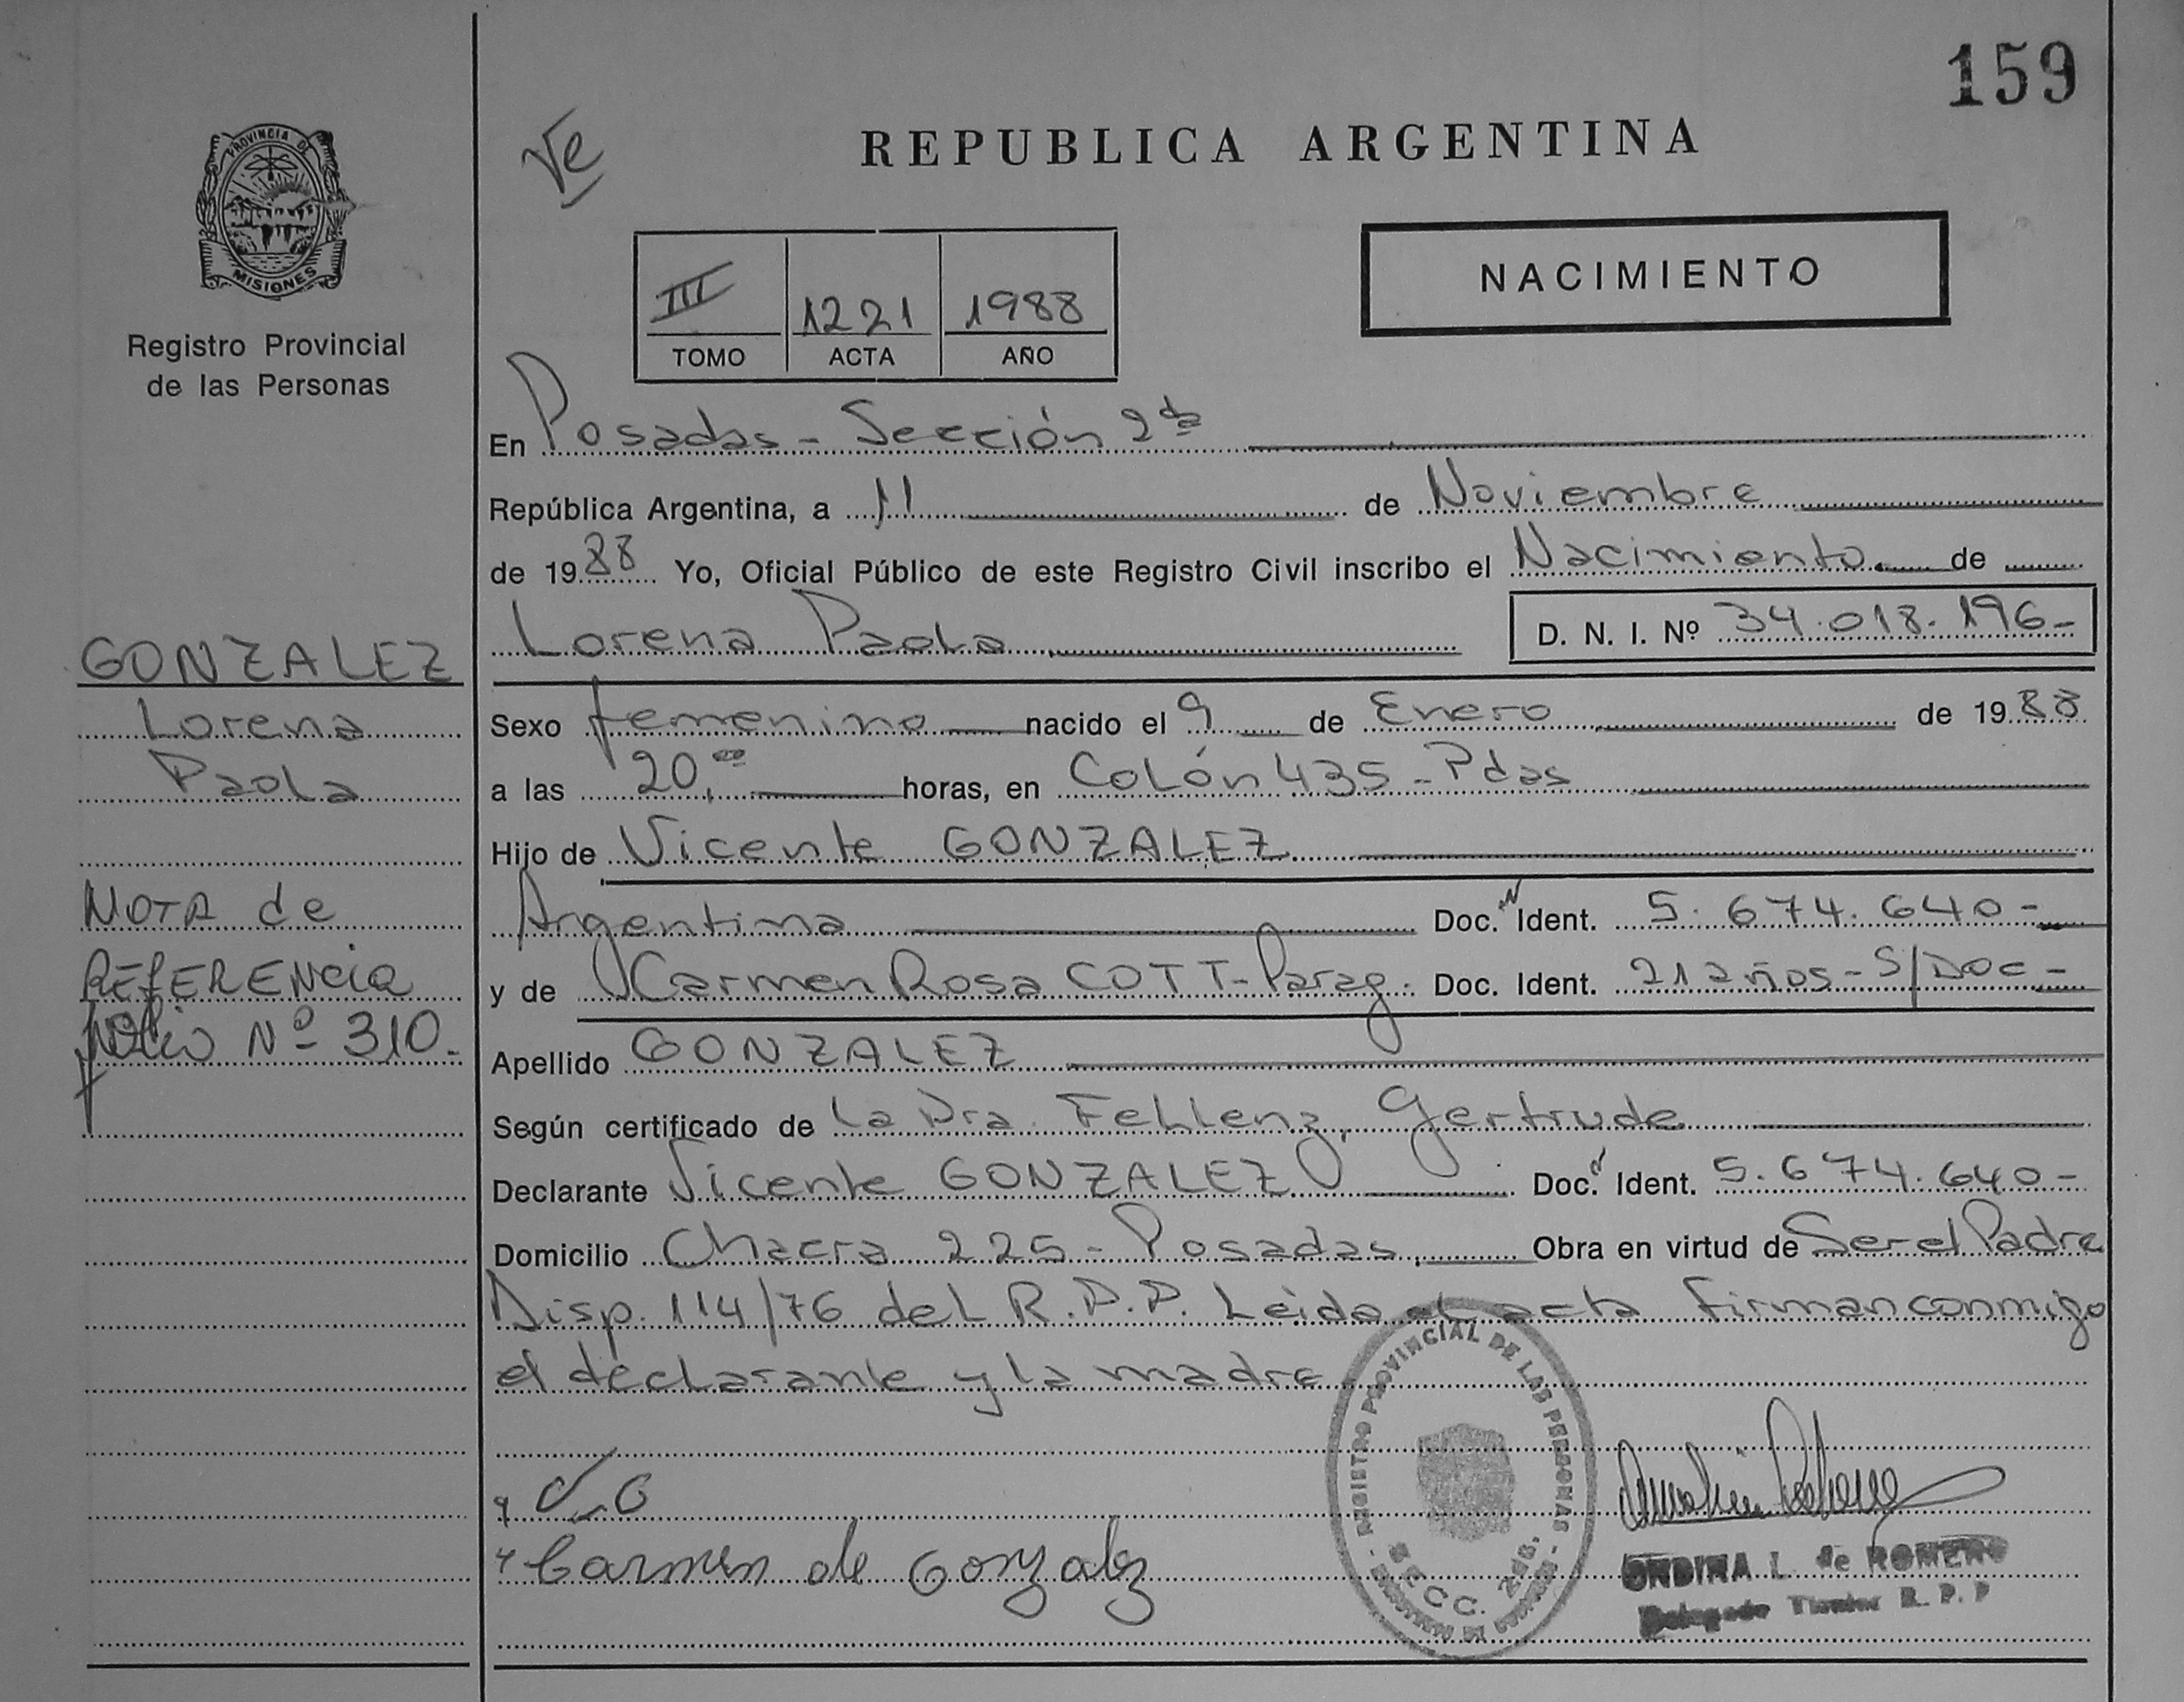 159
REPUBLICA ARGENTINA
PROVINCIA DE
MISIONES
Registro Provincial
de las Personas
NACIMIENTO
III 1221 1988
TOMO ACTA AÑO
En Posadas - Sección 2da
República Argentina, a 11 de Noviembre
de 1988 Yo, Oficial Público de este Registro Civil inscribo el Nacimiento de
Lorena Paola D. N. I. Nº 34.018.196-
GONZALEZ
Lorena
Paola
NOTA de
REFERENCIA
folio Nº 310.-
Sexo femenino nacido el 9 de Enero de 1988
a las 20,00 horas, en Colón 435 - Pdas
Hijo de Vicente GONZALEZ
Argentina Doc. Ident. 5.674.640-
y de Carmen Rosa COTT - Parag. Doc. Ident. 21 años - S/Doc -
Apellido GONZALEZ
Según certificado de la Dra. Fellenz, Gertrude
Declarante Vicente GONZALEZ Doc. Ident. 5.674.640-
Domicilio Chacra 225 - Posadas Obra en virtud de Ser el Padre
Disp. 114/76 del R.P.P. Leida el acta firman conmigo
el declarante y la madre
REGISTRO PROVINCIAL DE LAS PERSONAS
SECC. 2da.
Carmen de Gonzalez
ONDINA L. de ROMERO
Delegado Titular R. P. P